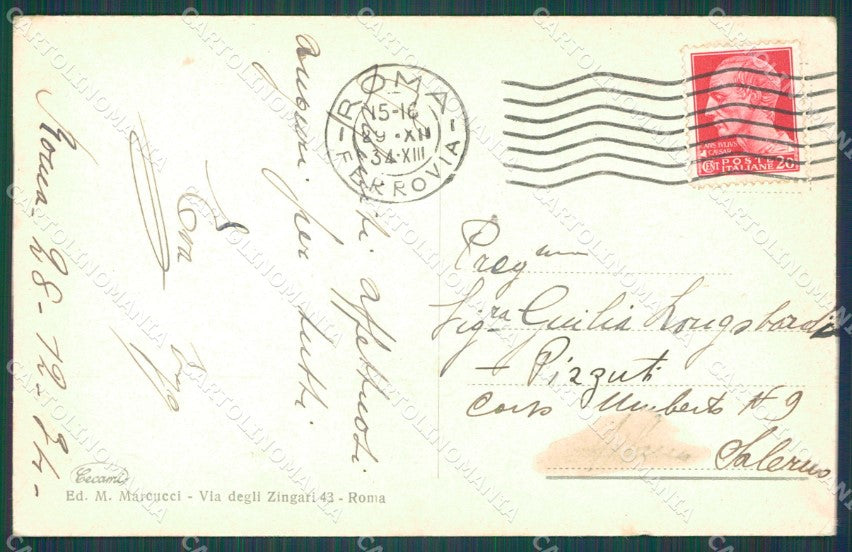 Roma - 28-12-34-
auguri per tutti
affettuosi
ROMA
15-16
29·XII
34·XIII
FERROVIA
IVLIVS
CAESAR
CENT POSTE 20
ITALIANE
Preg
Sig.ra Giulia Longobardi
- Pizzuti
Corso Umberto N 9
Salerno
Cecami
Ed. M. Marcucci - Via degli Zingari 43 - Roma
CARTOLINOMANIA